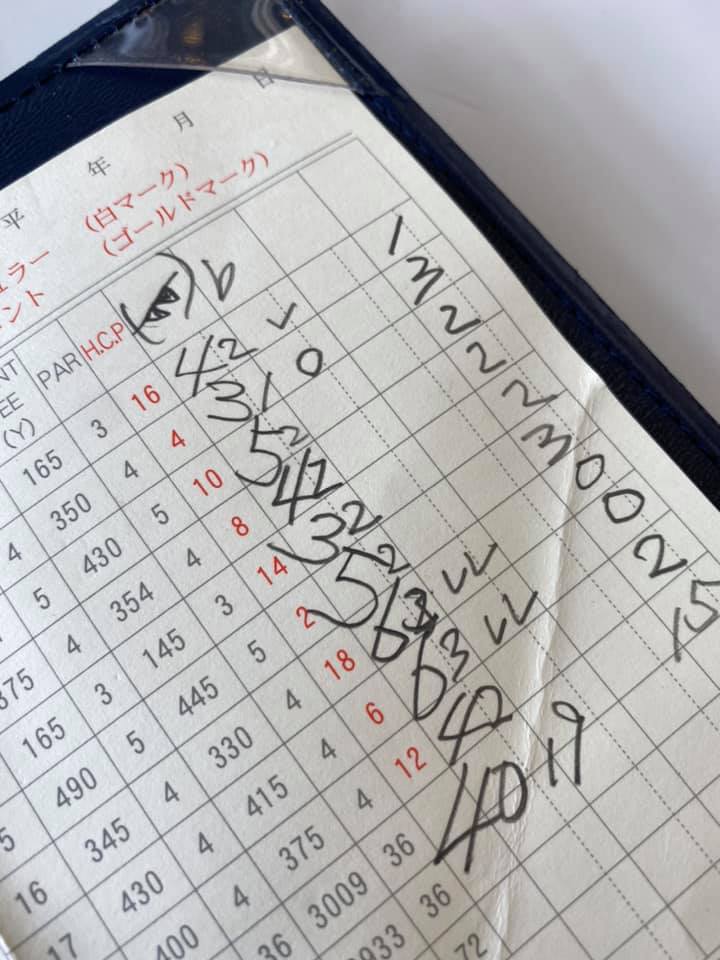 平 年 月 日
ュラー (白マーク)
ント (ゴールドマーク)
NT
EE
(Y) PAR H.C.P b
165 3 16 4 2 1
4 350 4 4 3 1 0 3
5 430 5 10 5 2 2
375 4 354 4 8 4 2 2
165 3 145 3 14 3 2 2
490 5 445 5 2 5 2 3
5 345 4 330 4 18 6 3 0
16 430 4 415 4 6 6 3 0
17 400 4 375 4 12 4 2
36 3009 36 40 19 15
933 36
72